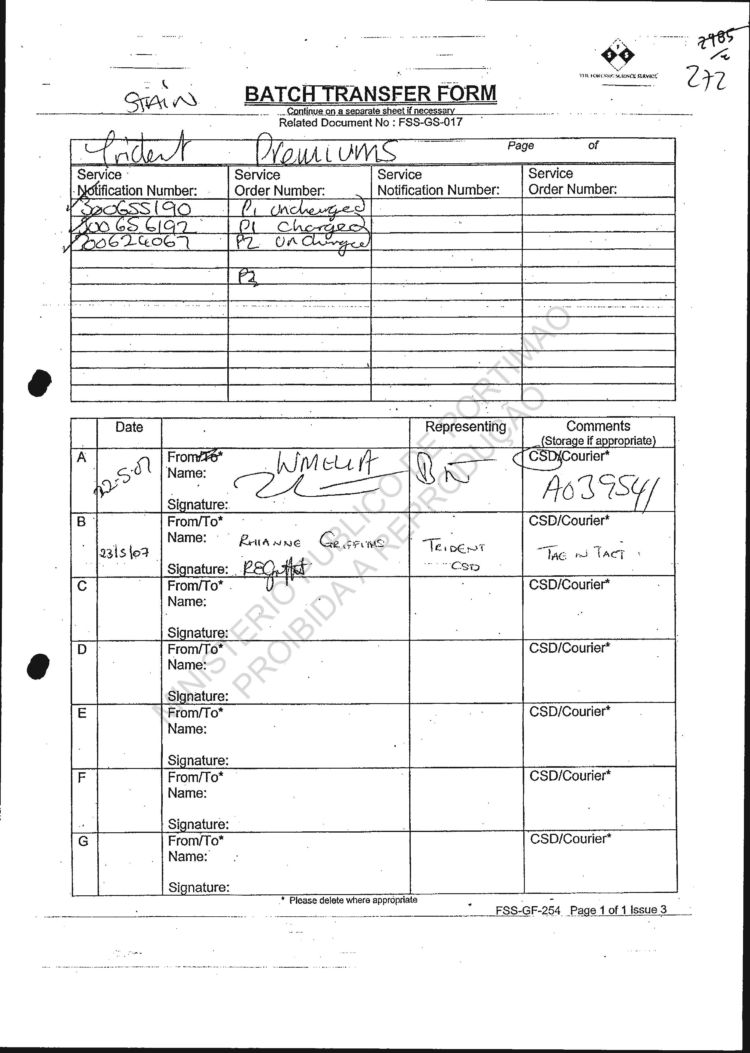 2985
272
THE FORENSIC SCIENCE SERVICE
STAIN
BATCH TRANSFER FORM
Continue on a separate sheet if necessary
Related Document No : FSS-GS-017
Trident Premiums Page of
Service Notification Number: Service Order Number: Service Notification Number: Service Order Number:
300655190 P1 Uncharged
300656192 P1 Charged
700624067 P2 Uncharged
P2
Date Representing Comments
(Storage if appropriate)
A 22-5-07 From/To* CSD/Courier*
Name: WMELIA A039541
Signature:
B From/To* CSD/Courier*
23/5/07 Name: RHIANNE GRIFFITHS TRIDENT CSD TAG IN TACT
Signature: REGriffiths
C From/To* CSD/Courier*
Name:
Signature:
D From/To* CSD/Courier*
Name:
Signature:
E From/To* CSD/Courier*
Name:
Signature:
F From/To* CSD/Courier*
Name:
Signature:
G From/To* CSD/Courier*
Name:
Signature:
* Please delete where appropriate
FSS-GF-254 Page 1 of 1 Issue 3
MINISTERIO PUBLICO DE PORTIMAO
PROIBIDA A REPRODUÇÃO